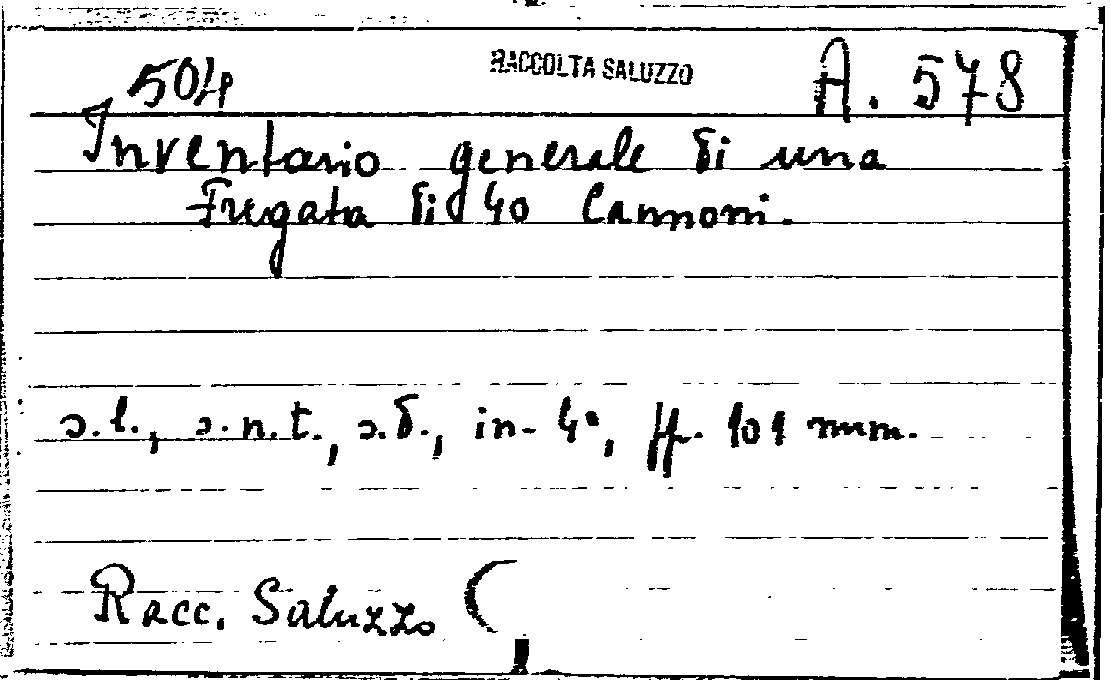 504 RACCOLTA SALUZZO A. 578
Inventario generale di una
Fregata di 40 Cannoni.
s.l., s.n.t., s.d., in-4°, ff. 101 num.
Racc. Saluzzo